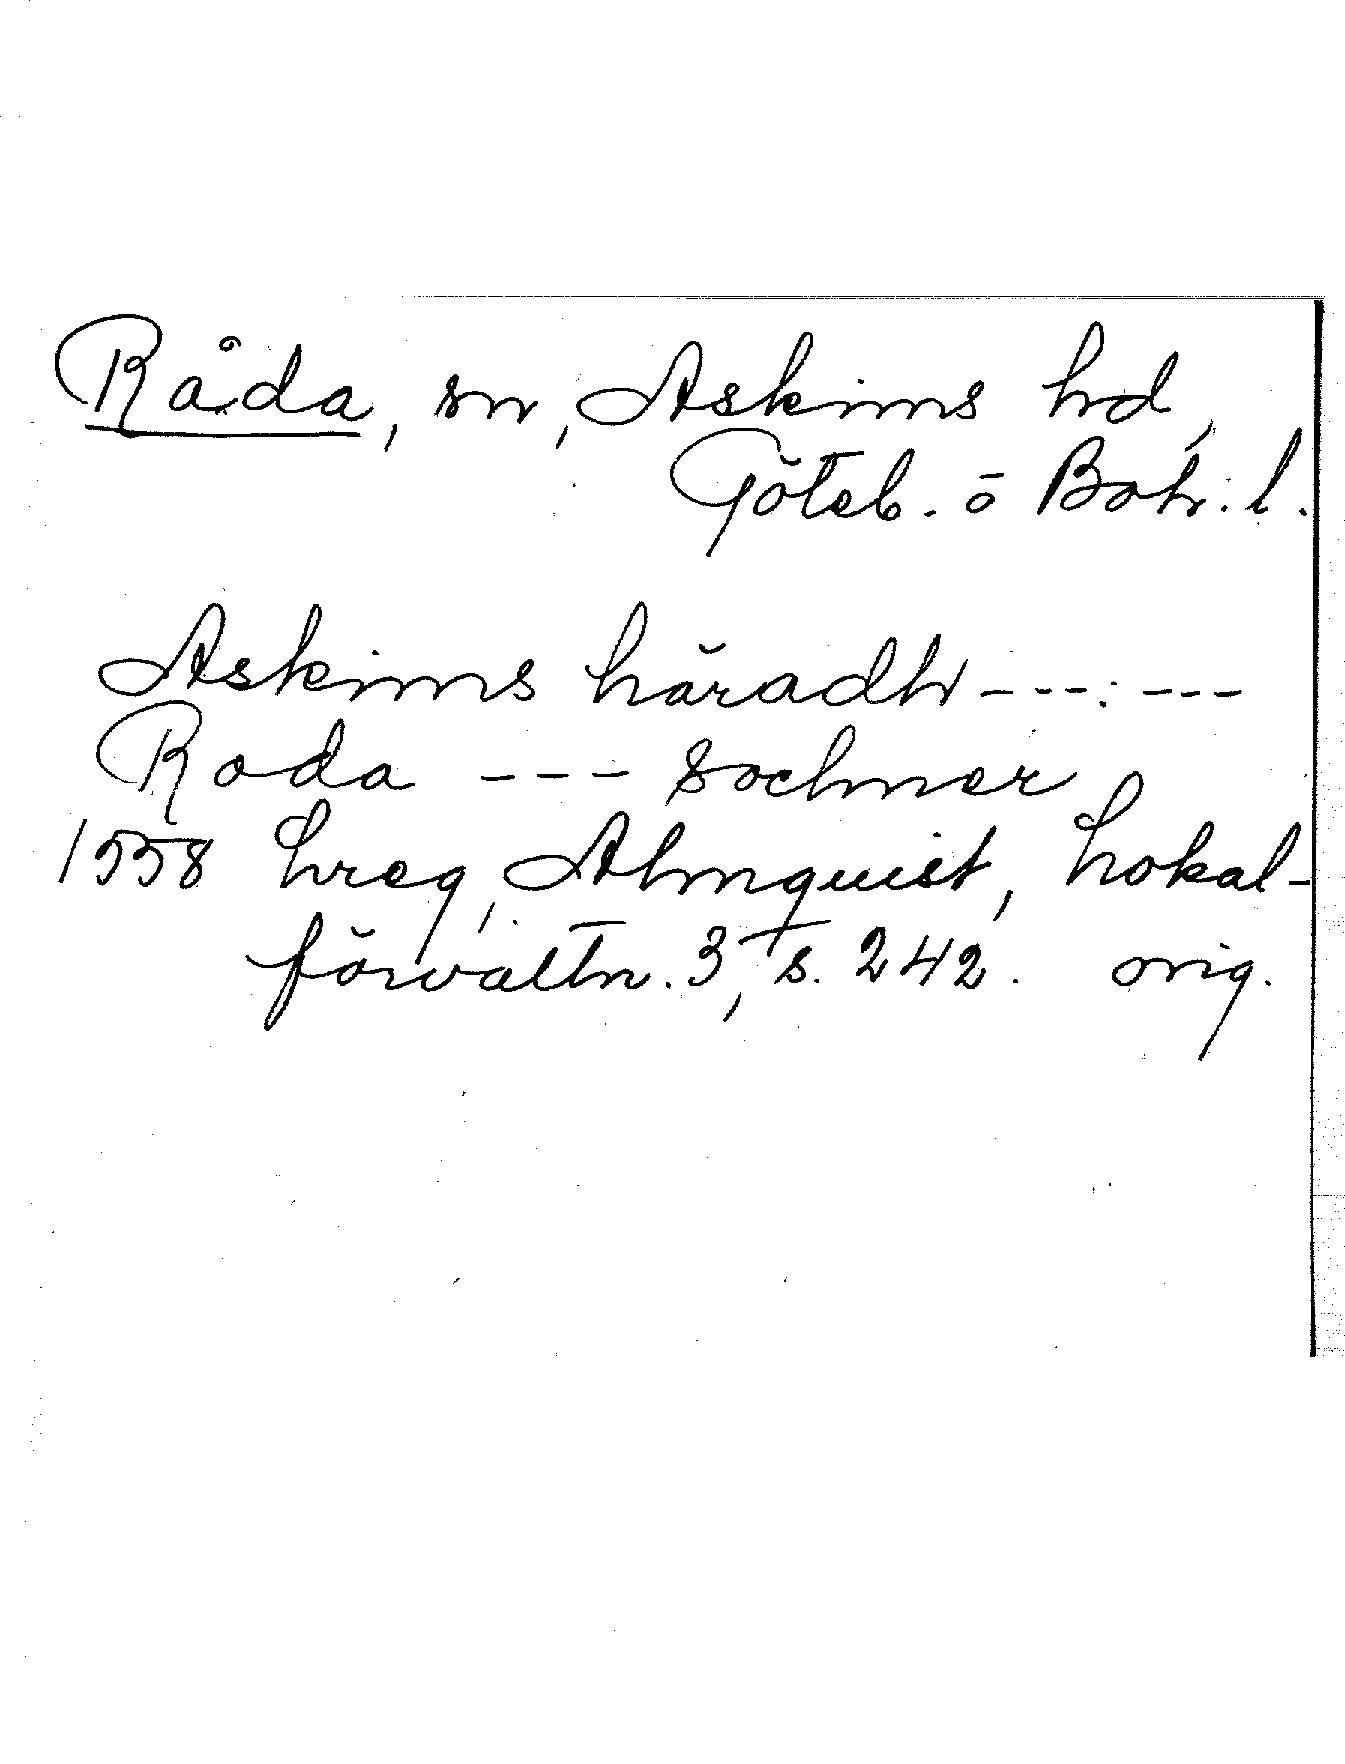 Råda, sn, Askims hd,
Göteb. o Boh. l.
Askims häradh ---:---
Roda --- Sochner
1558 hreg, Almquist, Lokal-
förvaltn. 3, s. 242. orig.